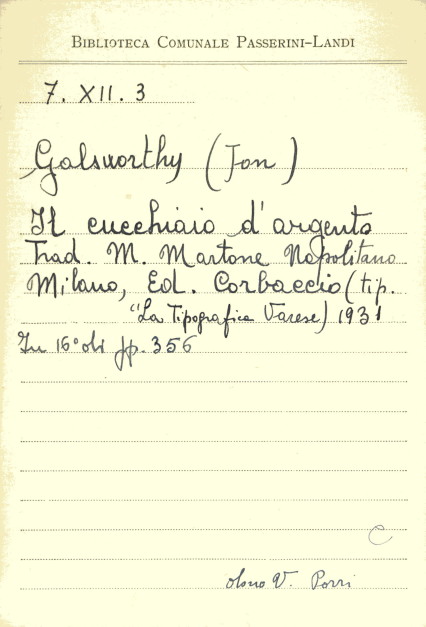 BIBLIOTECA COMUNALE PASSERINI-LANDI
7. XII. 3
Galsworthy (Jon)
Il cucchiaio d'argento
Trad. M. Martone Napolitano
Milano, Ed. Corbaccio (tip.
"La Tipografica Varese) 1931
In 16° di pp. 356
C
dono V. Porri